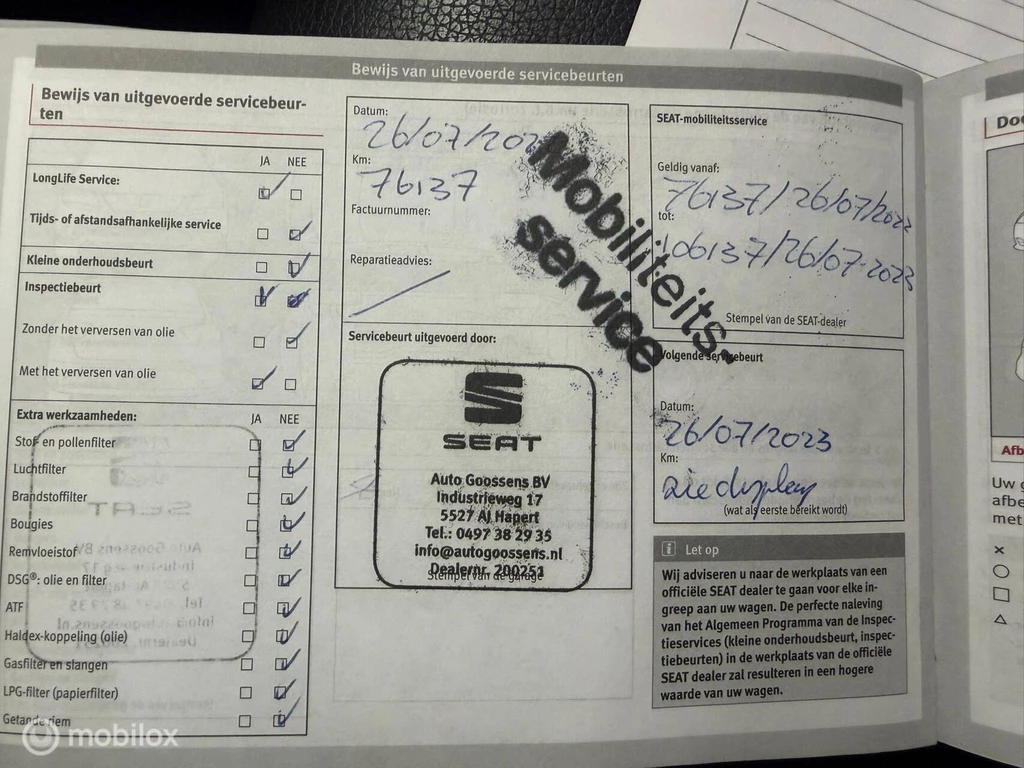 Bewijs van uitgevoerde servicebeurten
Bewijs van uitgevoerde servicebeur-
ten
JA NEE
LongLife Service:
Tijds- of afstandsafhankelijke service
Kleine onderhoudsbeurt
Inspectiebeurt
Zonder het verversen van olie
Met het verversen van olie
Extra werkzaamheden: JA NEE
Stof en pollenfilter
Luchtfilter
Brandstoffilter
Bougies
Remvloeistof
DSG®: olie en filter
ATF
Haldex-koppeling (olie)
Gasfilter en slangen
LPG-filter (papierfilter)
Getande riem
Datum:
26/07/202
Km:
76137
Factuurnummer:
Reparatieadvies:
Mobiliteits-
service
Servicebeurt uitgevoerd door:
SEAT
Auto Goossens BV
Industrieweg 17
5527 AJ Hapert
Tel.: 0497 38 29 35
info@autogoossens.nl
Dealernr. 200251
Stempel van de garage
SEAT-mobiliteitsservice
Geldig vanaf:
76137/26/07/2022
tot:
106137/26/07-2023
Stempel van de SEAT-dealer
Volgende servicebeurt
Datum:
26/07/2023
Km:
zie display
(wat als eerste bereikt wordt)
i Let op
Wij adviseren u naar de werkplaats van een
officiële SEAT dealer te gaan voor elke in-
greep aan uw wagen. De perfecte naleving
van het Algemeen Programma van de Inspec-
tieservices (kleine onderhoudsbeurt, inspec-
tiebeurten) in de werkplaats van de officiële
SEAT dealer zal resulteren in een hogere
waarde van uw wagen.
Doo
Afb
Uw g
afbe
met
mobilox